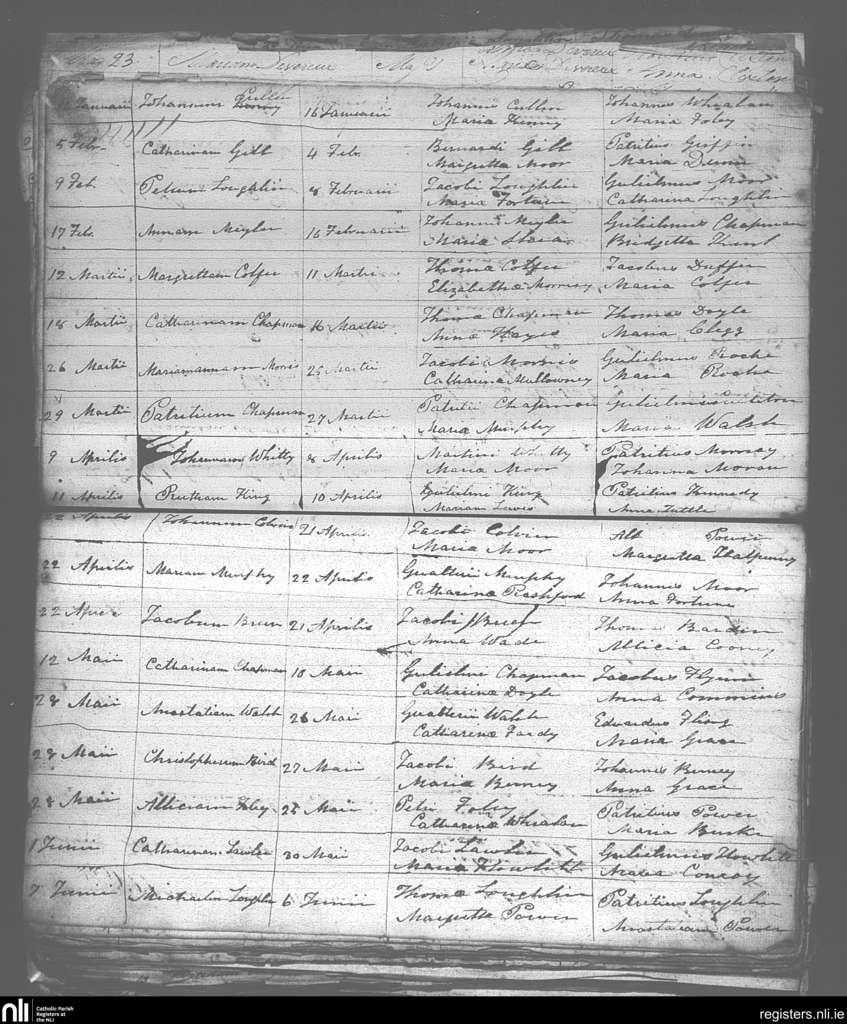 23 Mariam Devereux May
Januarii Johannem Cullin 16 Januarii Johannis Cullin Johannes Whealan
Maria Kinny Maria Foley
5 Feb. Catharinam Gilt 4 Feb. Bernardi Gilt Patritius Griffin
Margretta Moor Maria Dunn
9 Feb. Petrum Loughlin 8 Februarii Jacobi Loughlin Gulielmus Moor
Maria Fortune Catharina Loughlin
17 Feb. Annam Meyler 16 Februarii Johannis Meyler Gulielmus Chapman
Maria Bridgetta
12 Martii Margrettam Colfer 11 Martii Thoma Colfer Jacobus Duffin
Elizabetha Morrissy Maria Colfer
18 Martii Catharinam Chapman 16 Martii Thoma Chapman Thomas Doyle
Anna Hayes Maria Clegg
26 Martii Mariamannam Morris 25 Martii Jacobi Morris Gulielmus Roche
Catharina Mullowney Maria Roche
29 Martii Patritium Chapman 27 Martii Patritii Chapman Gulielmus
Maria Murphy Maria Walsh
9 Aprilis Johannam Whitty 8 Aprilis Martini Whitty Patritius Morrisy
Maria Moor Johanna Moran
11 Aprilis King 10 Aprilis Gulielmi King Patritius Kennedy
Mariam Lewis Anna Tuttle
22 Aprilis Johannem Colvin 21 Aprilis Jacobi Colvin Power
Maria Moor Margretta Halfpenny
22 Aprilis Mariam Murphy 22 Aprilis Gualterii Murphy Johannes Moor
Catharina Rashford Anna Fortune
22 Jacobum Breen 21 Aprilis Jacobi Breen Thomas Bardin
Anna Wade Allicia Cooney
12 Maii Catharinam Chapman 10 Maii Gulielmi Chapman Jacobus Flynn
Catharina Doyle Anna Commins
28 Maii Anastatiam Walsh 26 Maii Gualterii Walsh Edvardus
Catharina Fardy Maria Grace
28 Maii Christopherum Bird 27 Maii Jacobi Bird Johannes Berney
Maria Berney Anna Grace
28 Maii Alliciam Foley 25 Maii Petri Foley Patritius Power
Catharina Whealan Maria Burke
1 Junii Catharinam Lawler 30 Maii Jacobi Lawler Gulielmus Howlett
Maria Howlett Maria Conroy
7 Junii Michaelem Loughlin 6 Junii Thoma Loughlin Patritius Loughlin
Margretta Power Anastatia Power
nli Catholic Parish
Registers at
the NLI
registers.nli.ie